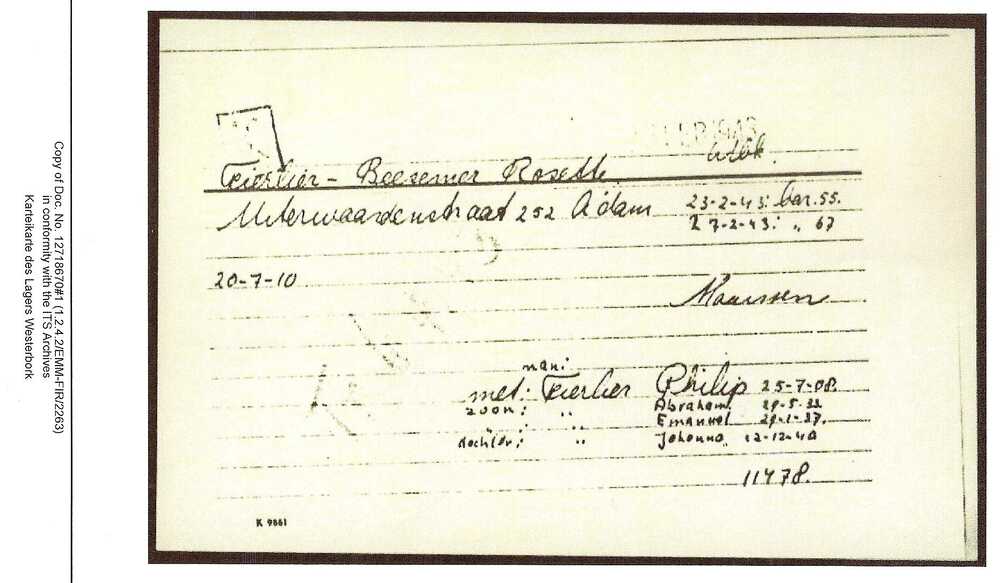 Copy of Doc. No. 12718670#1 (1.2.4.2/EMM-FIR/2263)
in conformity with the ITS Archives
Karteikarte des Lagers Westerbork
1943
Wbk.
Feierlier - Beesemer Rosette
Uiterwaardenstraat 252 A'dam 23-2-43: bar. 55.
27-2-43: „ 67
20-7-10
Maarssen
man:
met: Feierlier Philip 25-7-08.
zoon: „ Abraham. 29-5-33
„ : „ Emanuel 29-1-37.
dochter: „ Johanna. 12-12-40
11478.
K 9861